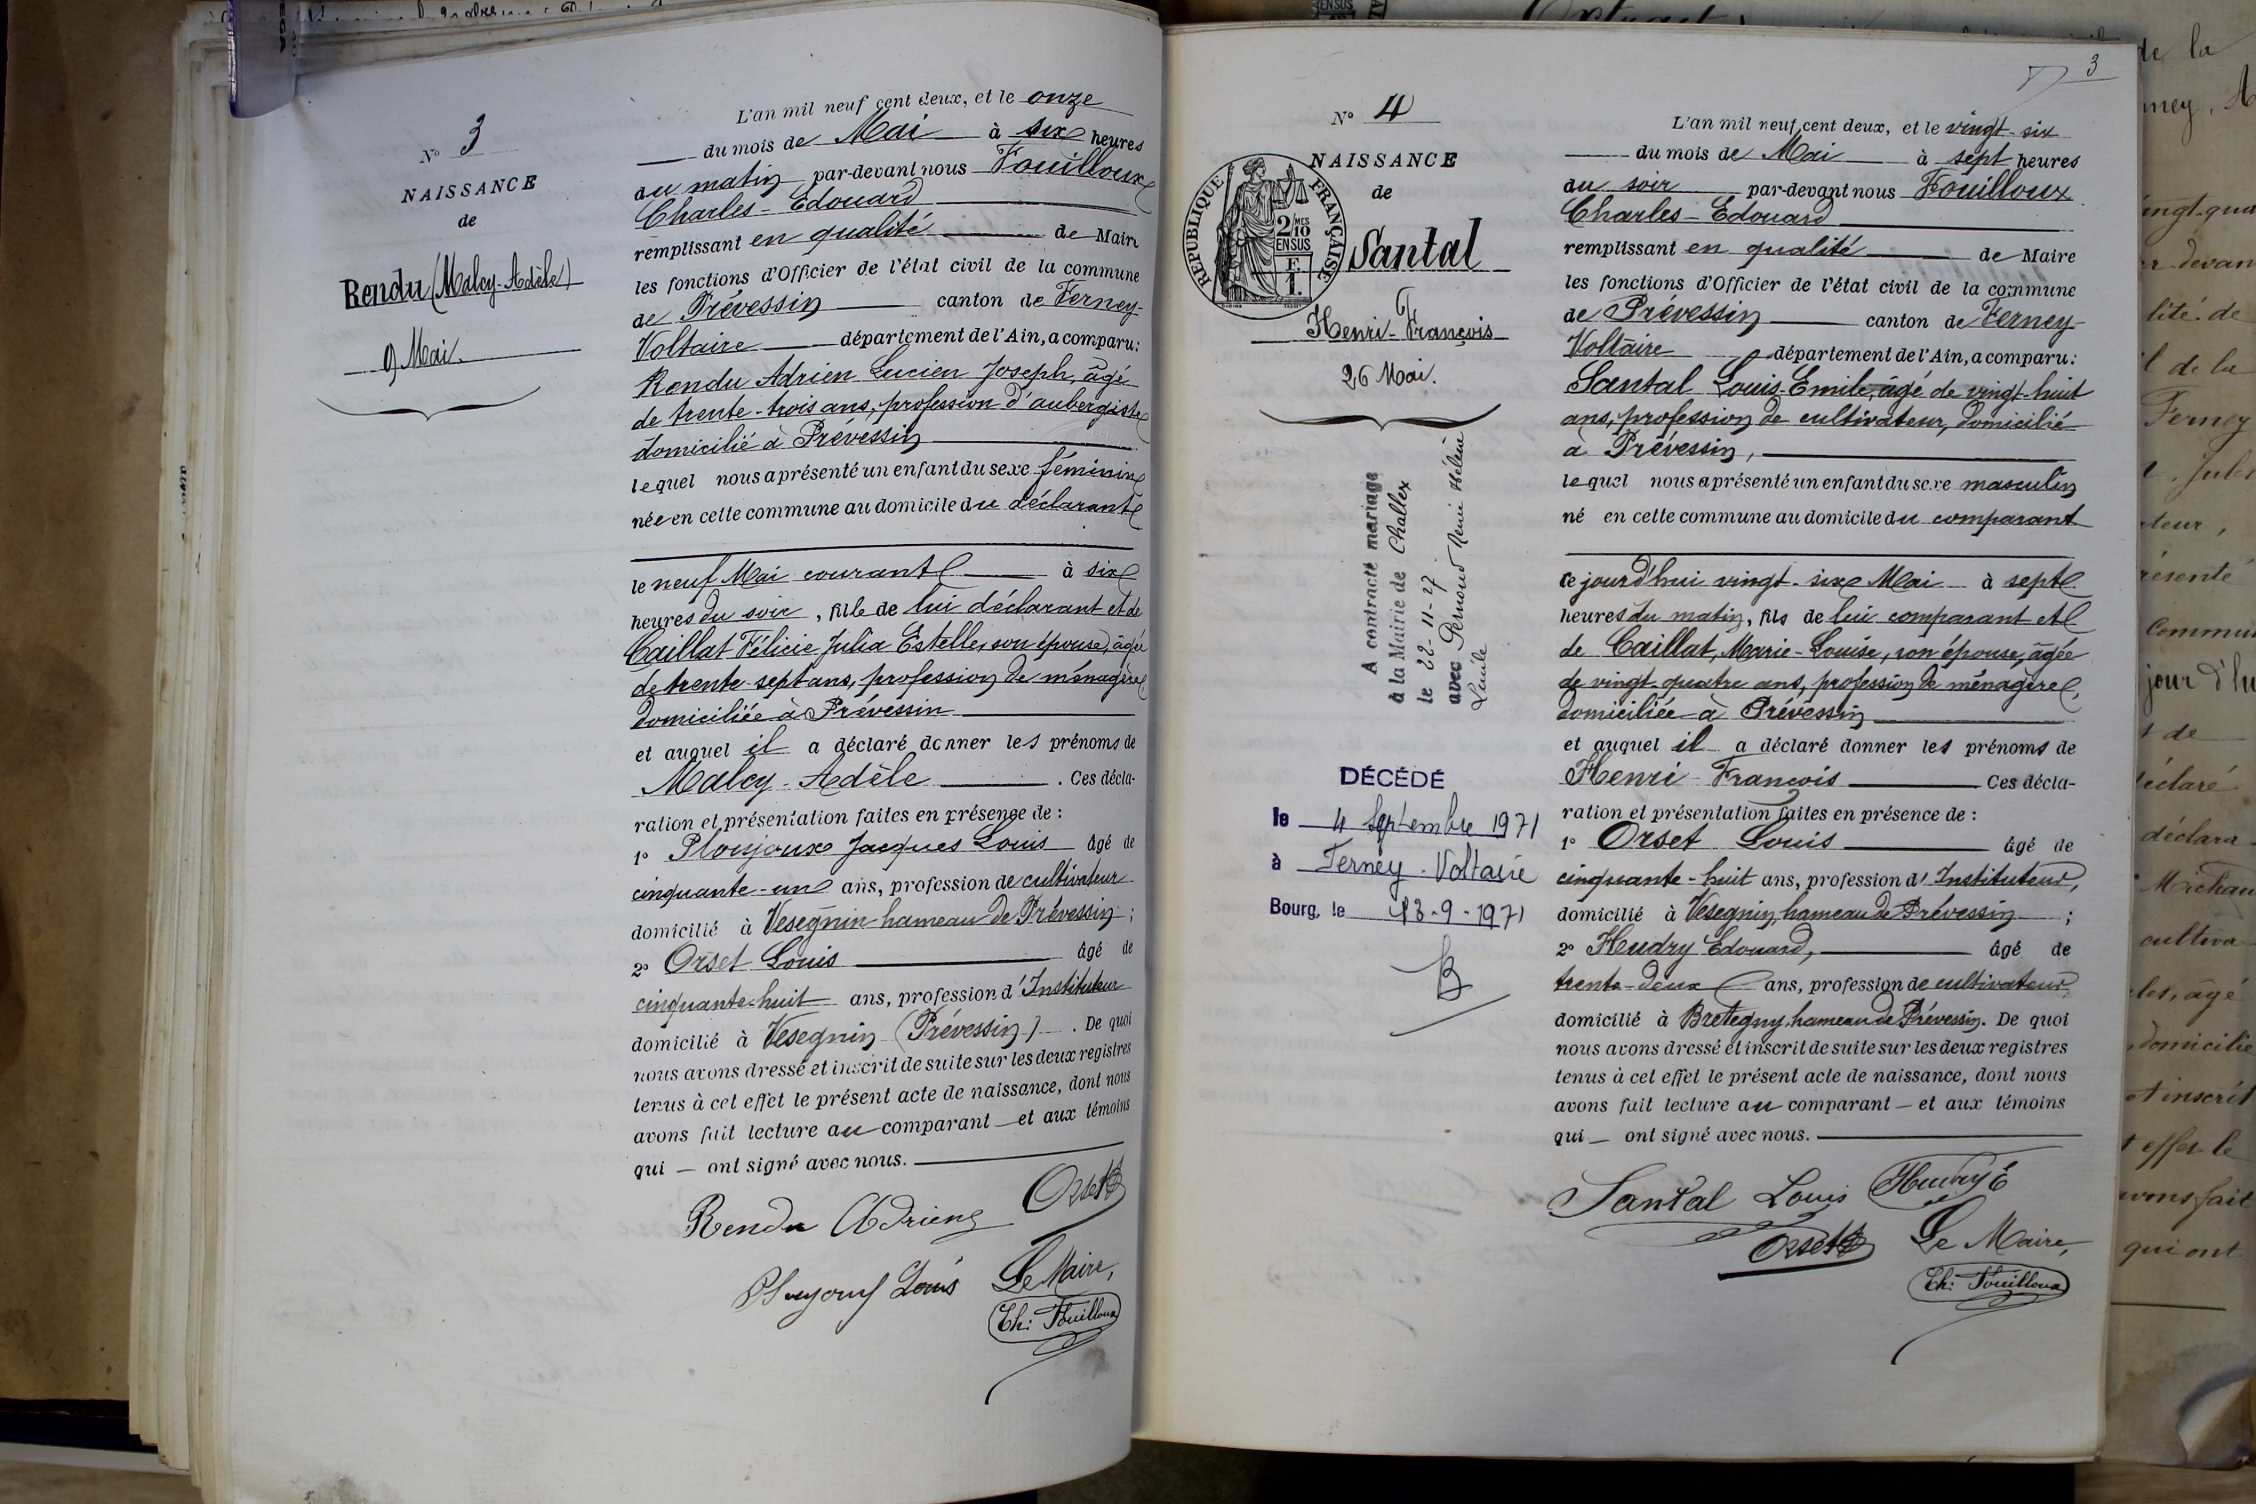 N° 3
NAISSANCE
de
Rendu (Malcy-Adèle)
9 Mai.
L'an mil neuf cent deux, et le onze
du mois de Mai à six heures
du matin par-devant nous Fouilloux
Charles-Edouard
remplissant en qualité de Maire
les fonctions d'Officier de l'état civil de la commune
de Prévessin canton de Ferney-
Voltaire département de l'Ain, a comparu:
Rendu Adrien Lucien Joseph, âgé
de trente-trois ans, profession d'aubergiste
domicilié à Prévessin
lequel nous a présenté un enfant du sexe féminin
née en cette commune au domicile du déclarant
le neuf Mai courant à six
heures du soir, fille de lui déclarant et de
Caillat Félicie Julia Estelle, son épouse, âgée
de trente-sept ans, profession de ménagère
domiciliée à Prévessin
et auquel il a déclaré donner les prénoms de
Malcy-Adèle. Ces décla-
ration et présentation faites en présence de:
1° Ploujoux Jacques Louis âgé de
cinquante-un ans, profession de cultivateur
domicilié à Vesegnin hameau de Prévessin;
2° Orset Louis âgé de
cinquante-huit ans, profession d'Instituteur
domicilié à Vesegnin (Prévessin). De quoi
nous avons dressé et inscrit de suite sur les deux registres
tenus à cet effet le présent acte de naissance, dont nous
avons fait lecture au comparant et aux témoins
qui ont signé avec nous.
Rendu Adrien Orset
Louis Le Maire,
Ch: Fouilloux
3
N° 4
NAISSANCE
de
RÉPUBLIQUE FRANÇAISE
2/10 MES
EN SUS
F.
1.
Santal
Henri-François
26 Mai.
A contracté mariage
à la Mairie de Challex
le 22-11-27
avec Pernoud Renée Hélène
DÉCÉDÉ
le 4 Septembre 1971
à Ferney-Voltaire
Bourg, le 13-9-1971
L'an mil neuf cent deux, et le vingt-six
du mois de Mai à sept heures
du soir par-devant nous Fouilloux
Charles-Edouard
remplissant en qualité de Maire
les fonctions d'Officier de l'état civil de la commune
de Prévessin canton de Ferney-
Voltaire département de l'Ain, a comparu:
Santal Louis-Emile, âgé de vingt-huit
ans, profession de cultivateur, domicilié
à Prévessin,
lequel nous a présenté un enfant du sexe masculin
né en cette commune au domicile du comparant
ce jourd'hui vingt-six Mai à sept
heures du matin, fils de lui comparant et
de Caillat, Marie-Louise, son épouse, âgée
de vingt-quatre ans, profession de ménagère,
domiciliée à Prévessin
et auquel il a déclaré donner les prénoms de
Henri-François Ces décla-
ration et présentation faites en présence de:
1° Orset Louis âgé de
cinquante-huit ans, profession d'Instituteur,
domicilié à Vesegnin, hameau de Prévessin;
2° Hudry Edouard, âgé de
trente-deux ans, profession de cultivateur,
domicilié à Bretegny, hameau de Prévessin. De quoi
nous avons dressé et inscrit de suite sur les deux registres
tenus à cet effet le présent acte de naissance, dont nous
avons fait lecture au comparant et aux témoins
qui ont signé avec nous.
Santal Louis Hudry E
Orset Le Maire,
Ch: Fouilloux